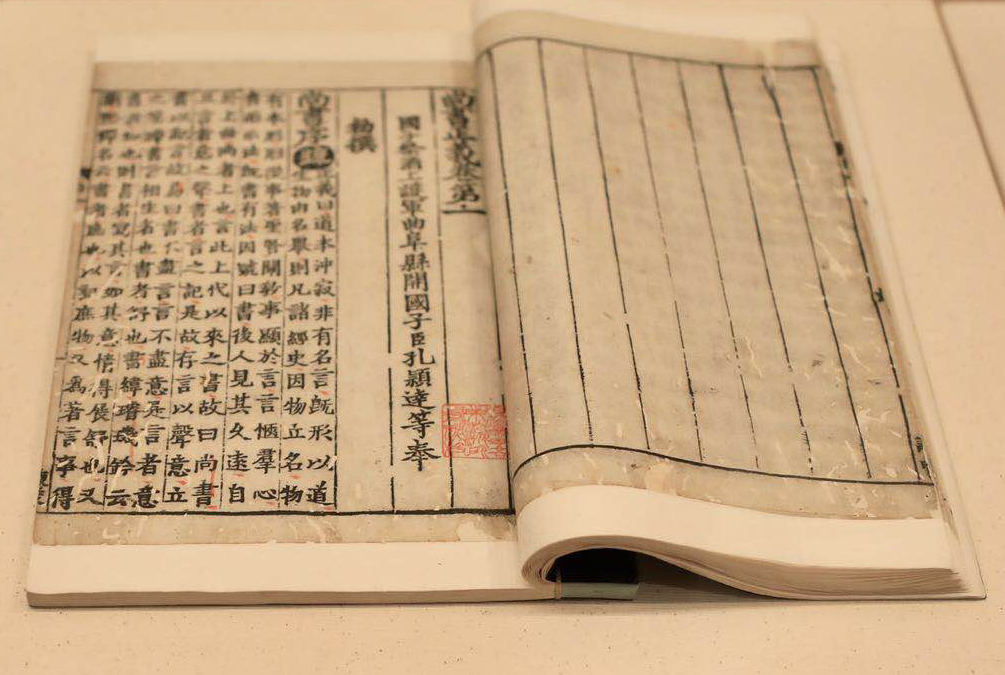 尚書正義卷第一
國子祭酒上護軍曲阜縣開國子臣孔穎達等奉
勑撰
尚書序 疏 正義曰道本沖寂非有名言既形以道
生物由名舉則凡諸經史因物立名物
有本形形從事著聖賢闡教事顯於言言愜羣心
書而示法既書有法因號曰書後人見其久遠自
於上世尚者上也言此上代以來之書故曰尚書
且言者意之聲書者言之記是故存言以聲意立
書以記言故易曰書不盡言言不盡意是言者意
之筌蹄書言相生者也書者舒也書緯璿璣鈐云
書者如也則書者寫其言如其意情得展舒也又
劉熙釋名云書者庶也以記庶物又爲著言事得